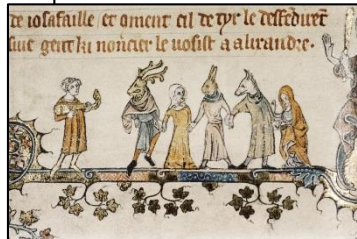 de iosafaille et oment cil de tyr le desfēduret
siut gent ki nōncier le uosist a alixandre.